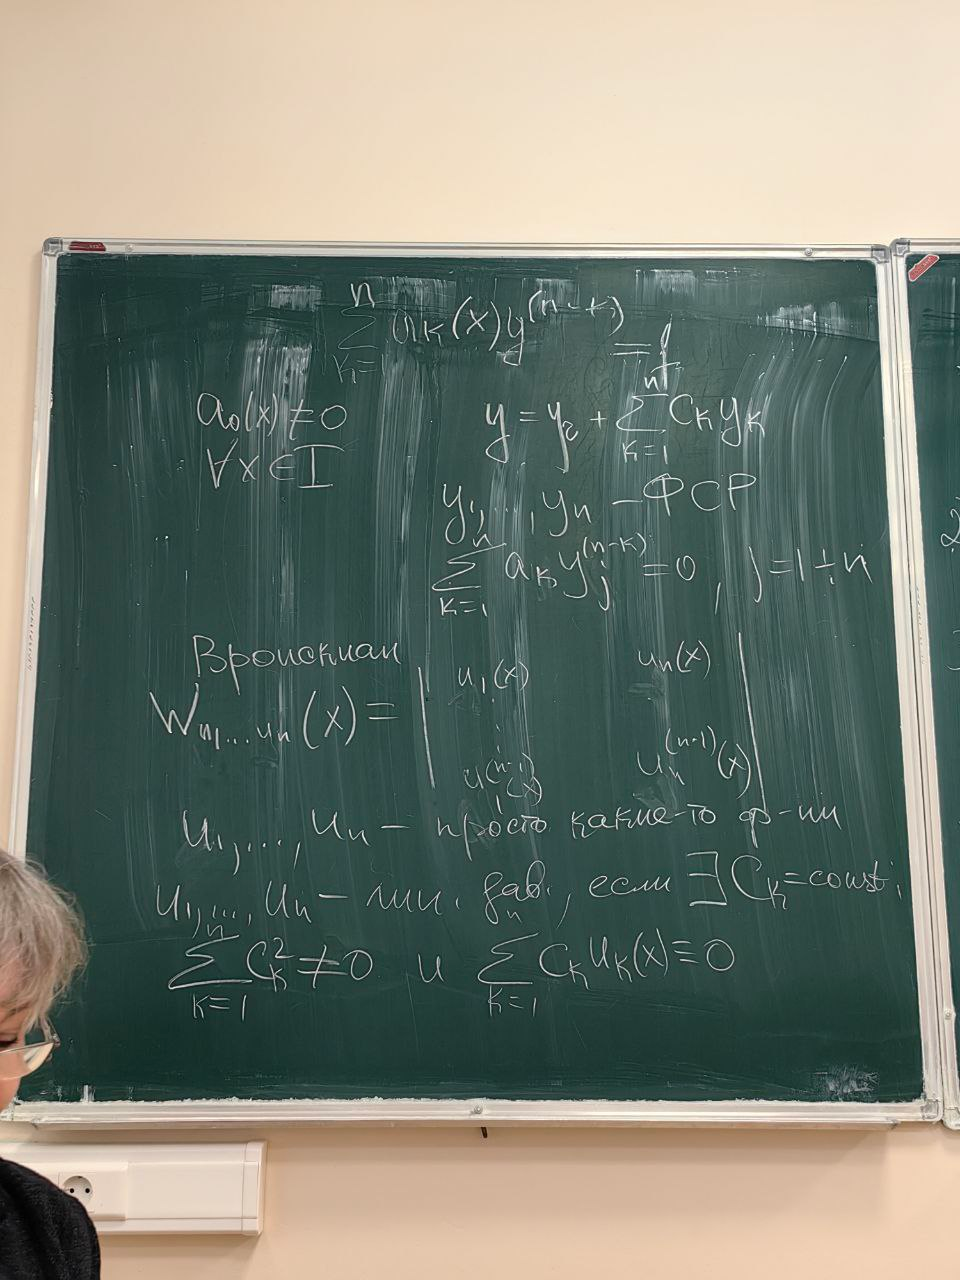 n
∑ aₖ(x)y⁽ⁿ⁻ᵏ⁾ = f
k=1
a₀(x) ≠ 0
∀x ∈ I
y = yᵣ + ∑ₖ₌₁ⁿ Cₖyₖ
y₁,..., yₙ – ФСР
∑ₖ₌₁ⁿ aₖyⱼ⁽ⁿ⁻ᵏ⁾ = 0, j = 1 ÷ n
Вронскиан
W u₁...uₙ (x) = | u₁(x) uₙ(x) |
⋮
| u₁⁽ⁿ⁻¹⁾(x) uₙ⁽ⁿ⁻¹⁾(x) |
u₁,..., uₙ – просто какие-то ф-ии
u₁,..., uₙ – лин. зав., если ∃ Cₖ = const:
∑ₖ₌₁ⁿ Cₖ² ≠ 0 и ∑ₖ₌₁ⁿ Cₖuₖ(x) ≡ 0